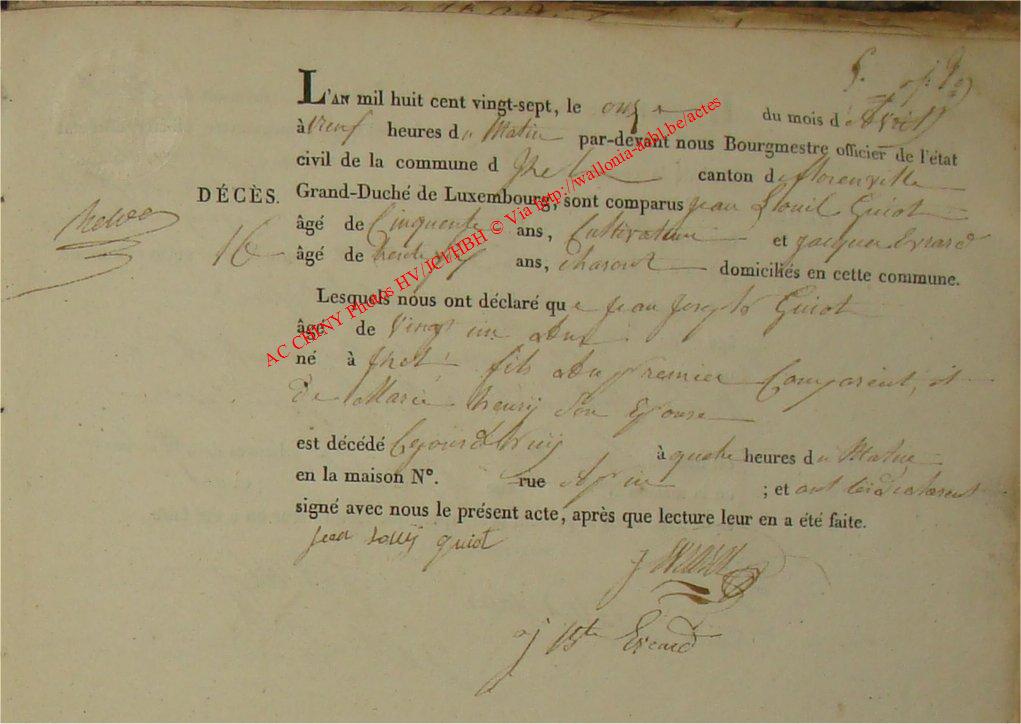 L'AN mil huit cent vingt-sept, le onze du mois d'Avril
à Neuf heures du Matin par-devant nous Bourgmestre officier de l'état
civil de la commune d canton de florenville
DÉCÈS. Grand-Duché de Luxembourg, sont comparus jean Louis Guiot
16 âgé de Cinquante ans, Cultivateur et jacques Evrard
âgé de ans, domiciliés en cette commune.
Lesquels nous ont déclaré que jean joseph Guiot
âgé de vingt un Ans
né à fils du premier Comparent, et
de Marie henry Son Epouse
est décédé Cejourd'huy à quatre heures du Matin
en la maison N°. rue ; et ont les déclarent
signé avec nous le présent acte, après que lecture leur en a été faite.
jean guiot
Evrard
AC CHINY Photos HV/JCVHBH © Via http://wallonia-asbl.be/actes